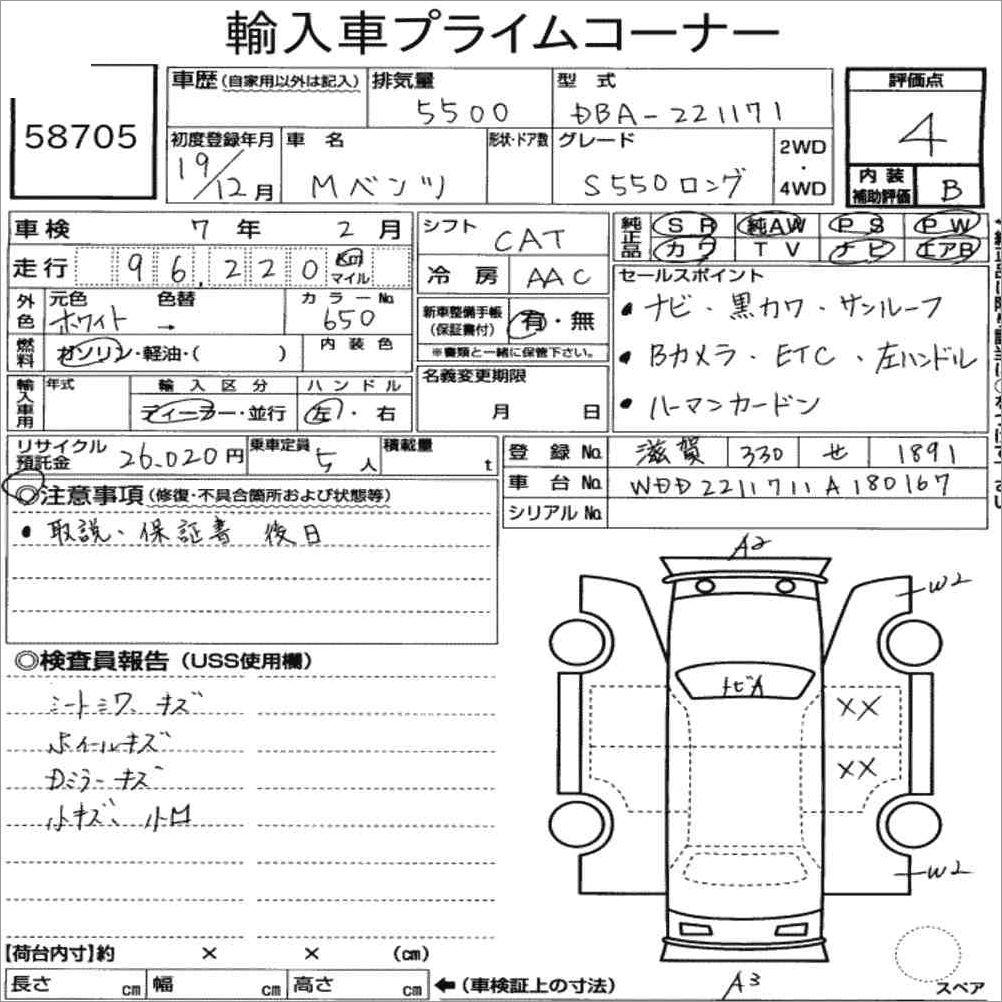 輸入車プライムコーナー
58705
車歴(自家用以外は記入) 排気量 型式 評価点
5500 DBA-221171 4
初度登録年月 車名 形状・ドア数 グレード 2WD・4WD
19/12月 Mベンツ S550ロング
内装補助評価 B
車検 7年 2月 シフト CAT 純正品 SR 純AW PS PW
カワ TV ナビ エアB
走行 96,220 Km マイル 冷房 AAC
セールスポイント
外色 元色 色替 カラーNo. 新車整備手帳(保証書付) 有・無
ホワイト → 650 ※書類と一緒に保管下さい。
• ナビ・黒カワ・サンルーフ
燃料 ガソリン・軽油・( ) 内装色
• Bカメラ・ETC・左ハンドル
輸入車用 年式 輸入区分 ハンドル 名義変更期限
ディーラー・並行 左・右 月 日
• ハーマンカードン
リサイクル預託金 26,020円 乗車定員 5人 積載量 t
登録No. 滋賀 330 せ 1891
車台No. WDD2211711A180167
シリアルNo.
◎注意事項(修復・不具合箇所および状態等)
• 取説・保証書 後日
A2
W2
◎検査員報告(USS使用欄)
シートシワ、キズ
トビA
XX
ホイールキズ
Dミラーキズ
XX
小キズ、小凹
W2
【荷台内寸】約 × × (cm)
長さ cm 幅 cm 高さ cm ←(車検証上の寸法)
A3
スペア